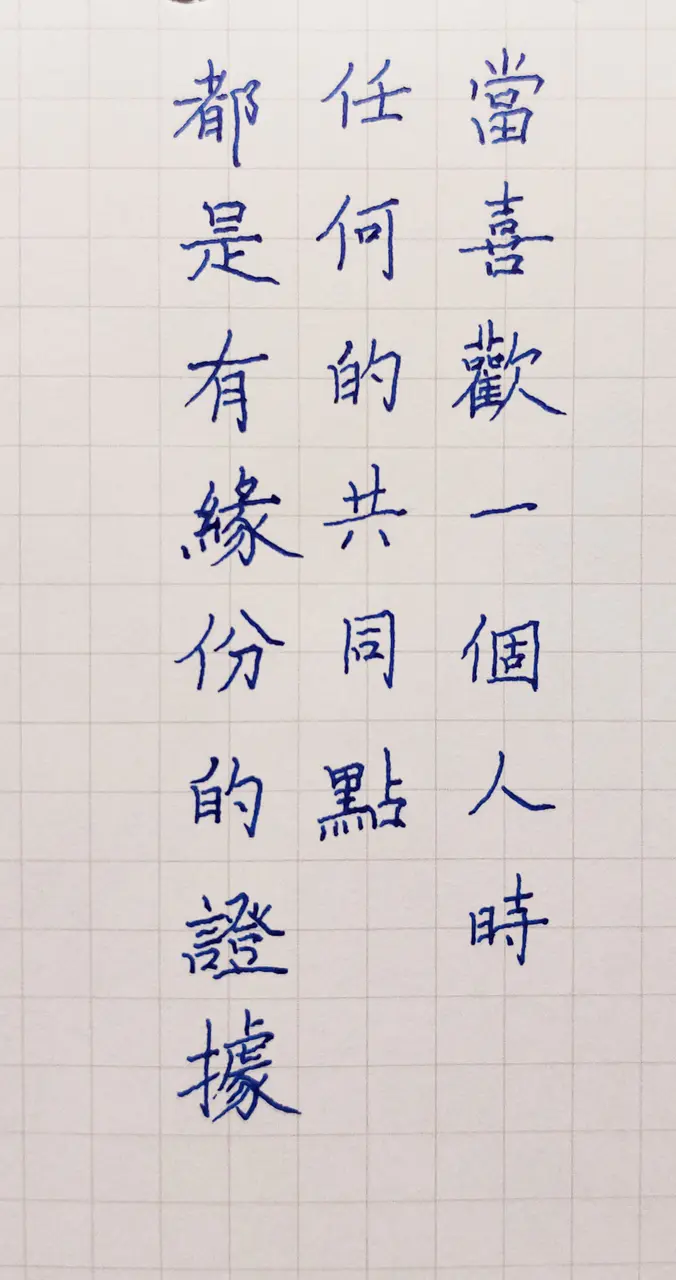 當喜歡一個人時
任何的共同點
都是有緣份的證據